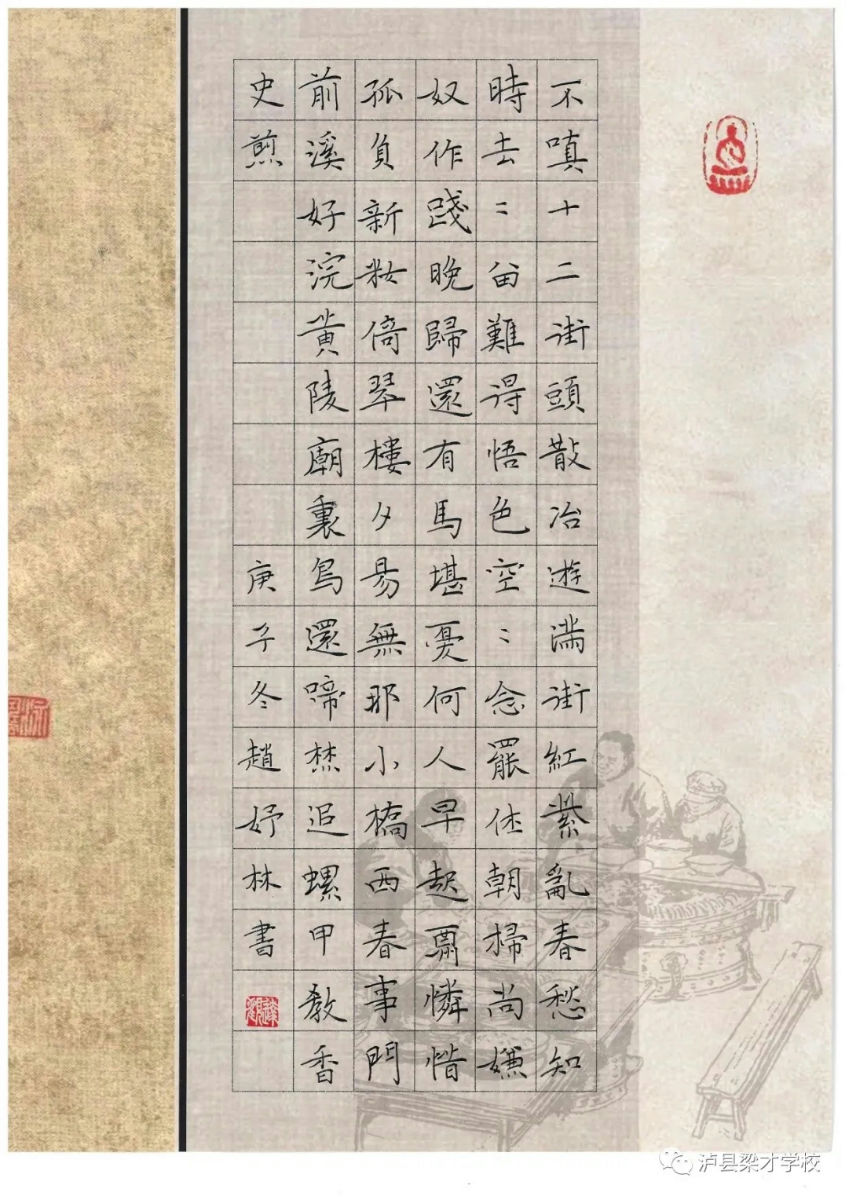 不嗔十二街頭散冶遊滿街紅紫亂春愁知
時去〻畄難得悟色空〻念罷休朝掃尚嫌
奴作踐晚歸還有馬堪憂何人早起憐惜
孤負新妝倚翠樓夕昜無那小橋西春事門
前溪好浣黄陵廟裏鳥還啼焚追螺甲教香
史煎
庚子冬趙妤林書
泸县梁才学校